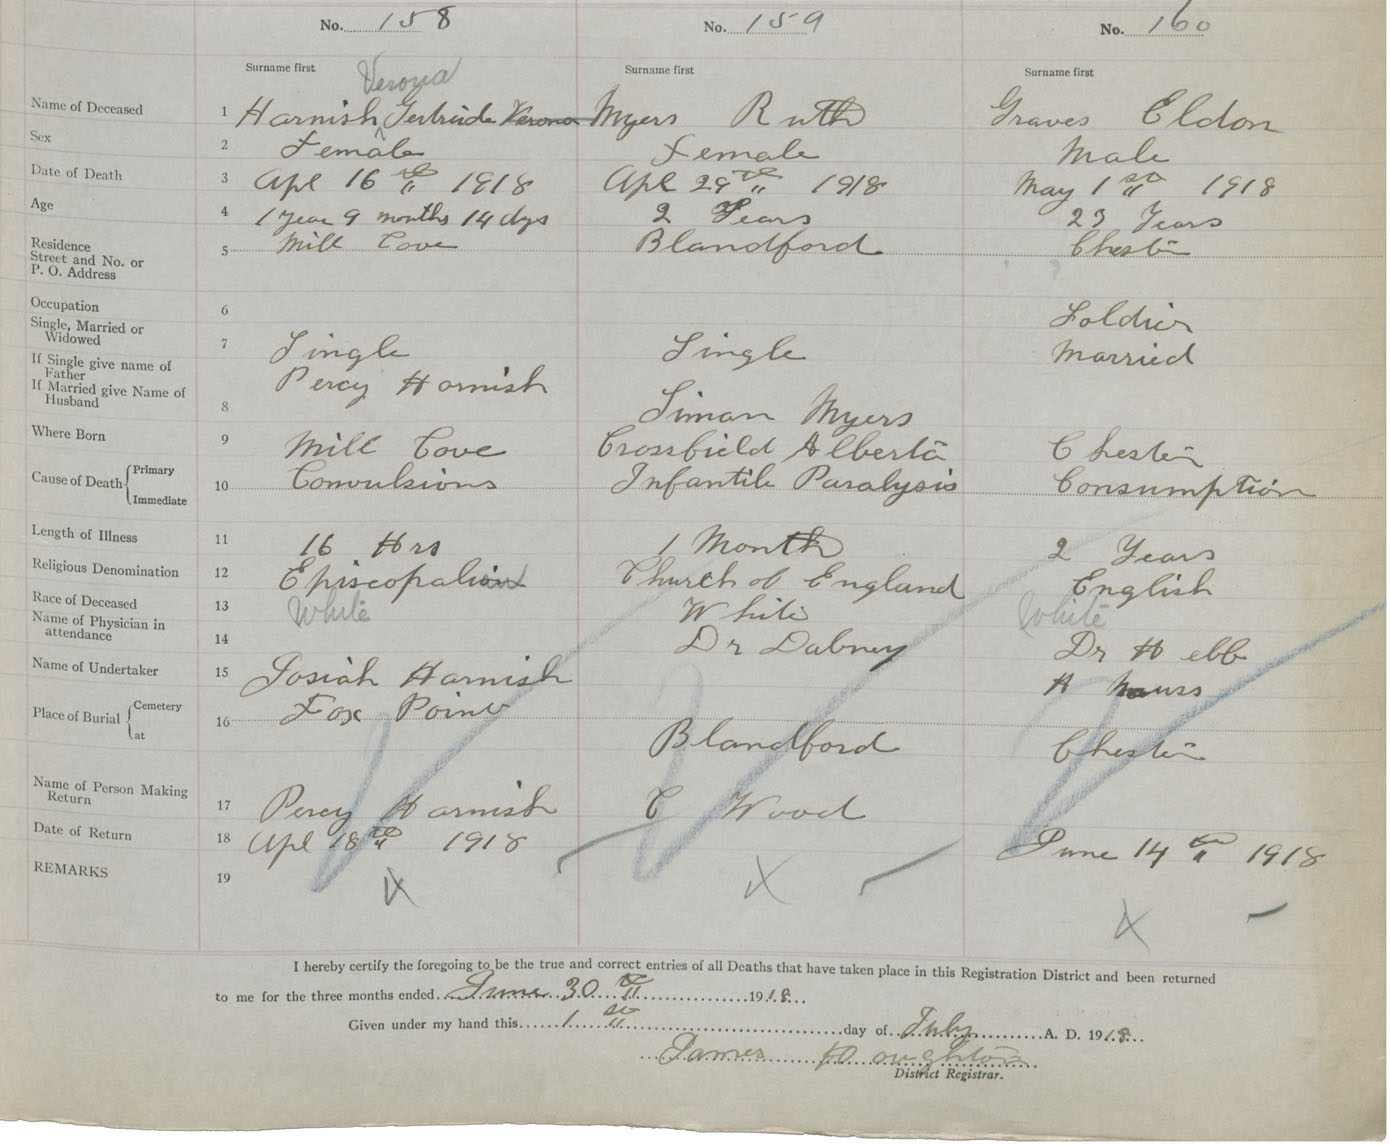 No. 158 No. 159 No. 160
Surname first Verona Surname first Surname first
Name of Deceased 1 Harnish Gertrude Verona Myers Ruth Graves Eldon
Sex 2 Female Female Male
Date of Death 3 Apl 16th 1918 Apl 29th 1918 May 1st 1918
Age 4 1 year 9 months 14 dys 2 Years 23 Years
Residence Street and No. or P. O. Address 5 Mill Cove Blandford Chester
Occupation 6 Soldier
Single, Married or Widowed 7 Single Single Married
If Single give name of Father
If Married give Name of Husband 8 Percy Harnish Siman Myers
Where Born 9 Mill Cove Crossfield Alberta Chester
Cause of Death Primary Immediate 10 Convulsions Infantile Paralysis Consumption
Length of Illness 11 16 Hrs 1 Month 2 Years
Religious Denomination 12 Episcopalian Church of England English
Race of Deceased 13 White White White
Name of Physician in attendance 14 Dr Dabney Dr Hebb
Name of Undertaker 15 Josiah Harnish A
Place of Burial Cemetery at 16 Fox Point Blandford Chester
Name of Person Making Return 17 Percy Harnish C Wood
Date of Return 18 Apl 18th 1918 June 14th 1918
REMARKS 19 X X X
I hereby certify the foregoing to be the true and correct entries of all Deaths that have taken place in this Registration District and been returned
to me for the three months ended June 30th 1918
Given under my hand this 1st day of July A. D. 1918
James Houghton
District Registrar.